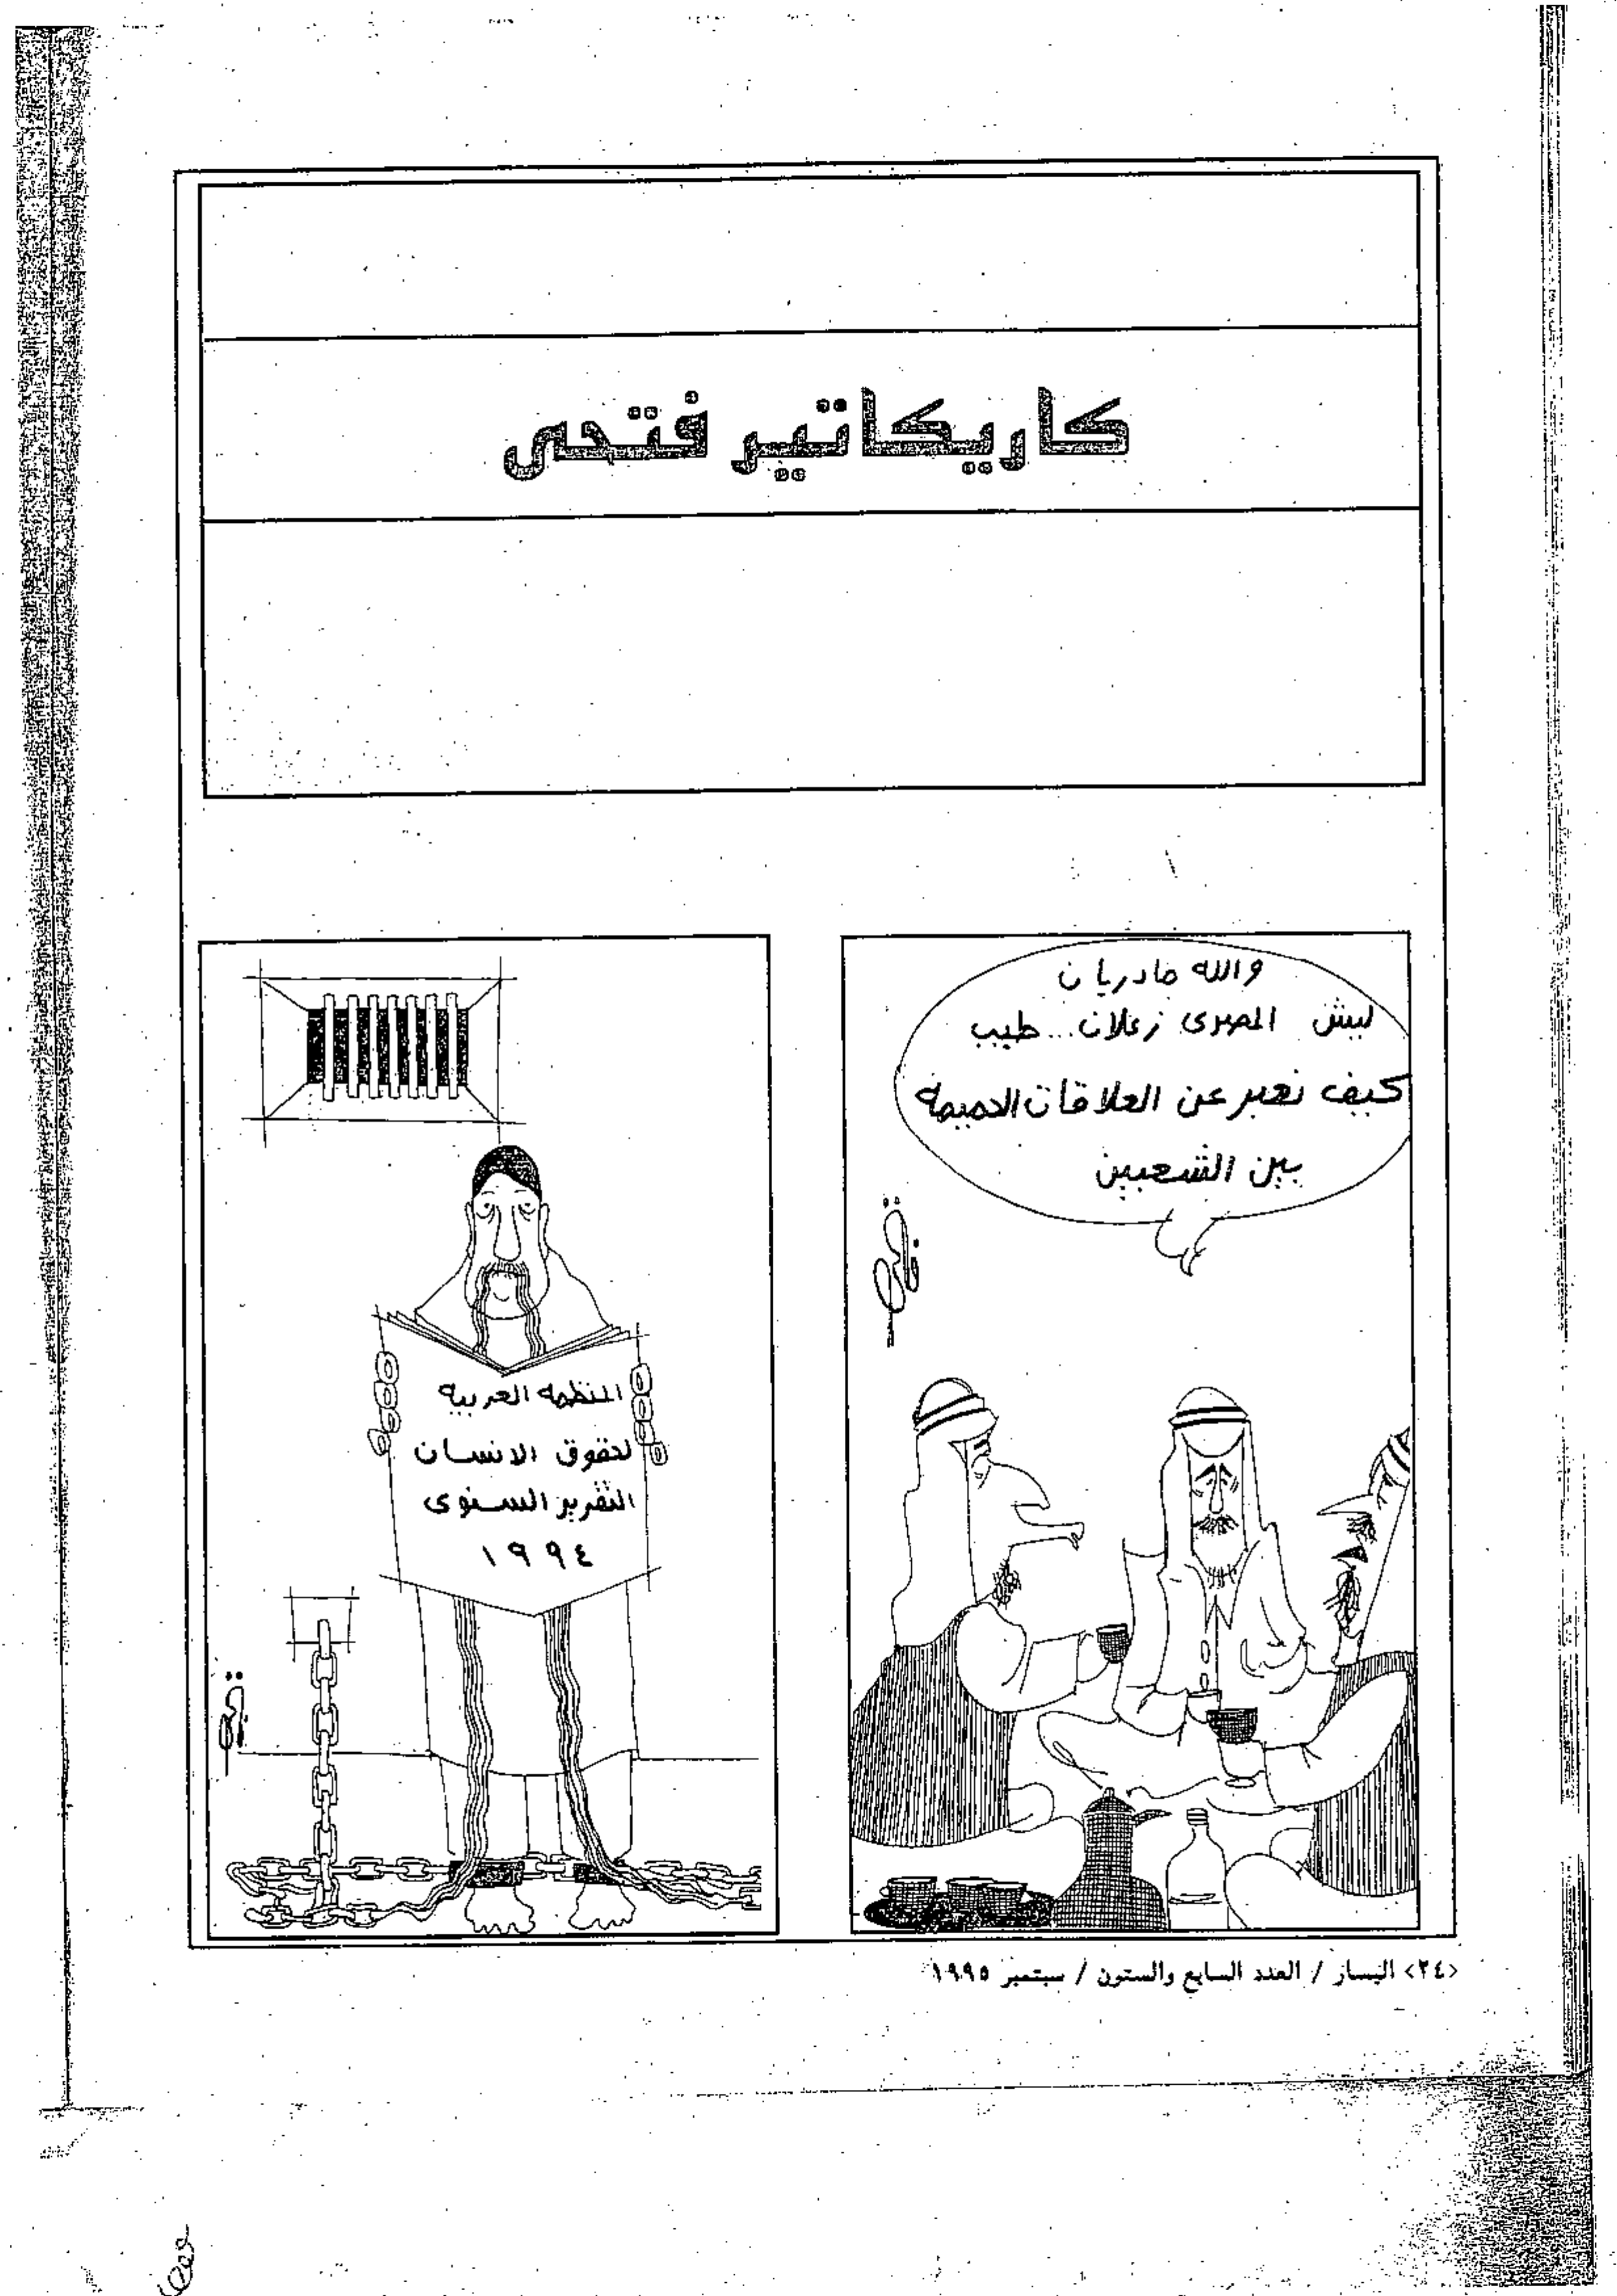 كاريكاتير فتحى
والله مادريان
ليش المصرى زعلان... طيب
كيف نعبر عن العلاقات الحميمة
بين الشعبين
فتحى
المنظمة العربية
لحقوق الانسان
التقرير السنوى
١٩٩٤
فتحى
<٢٤> اليسار / العدد السابع والستون / سبتمبر ١٩٩٥